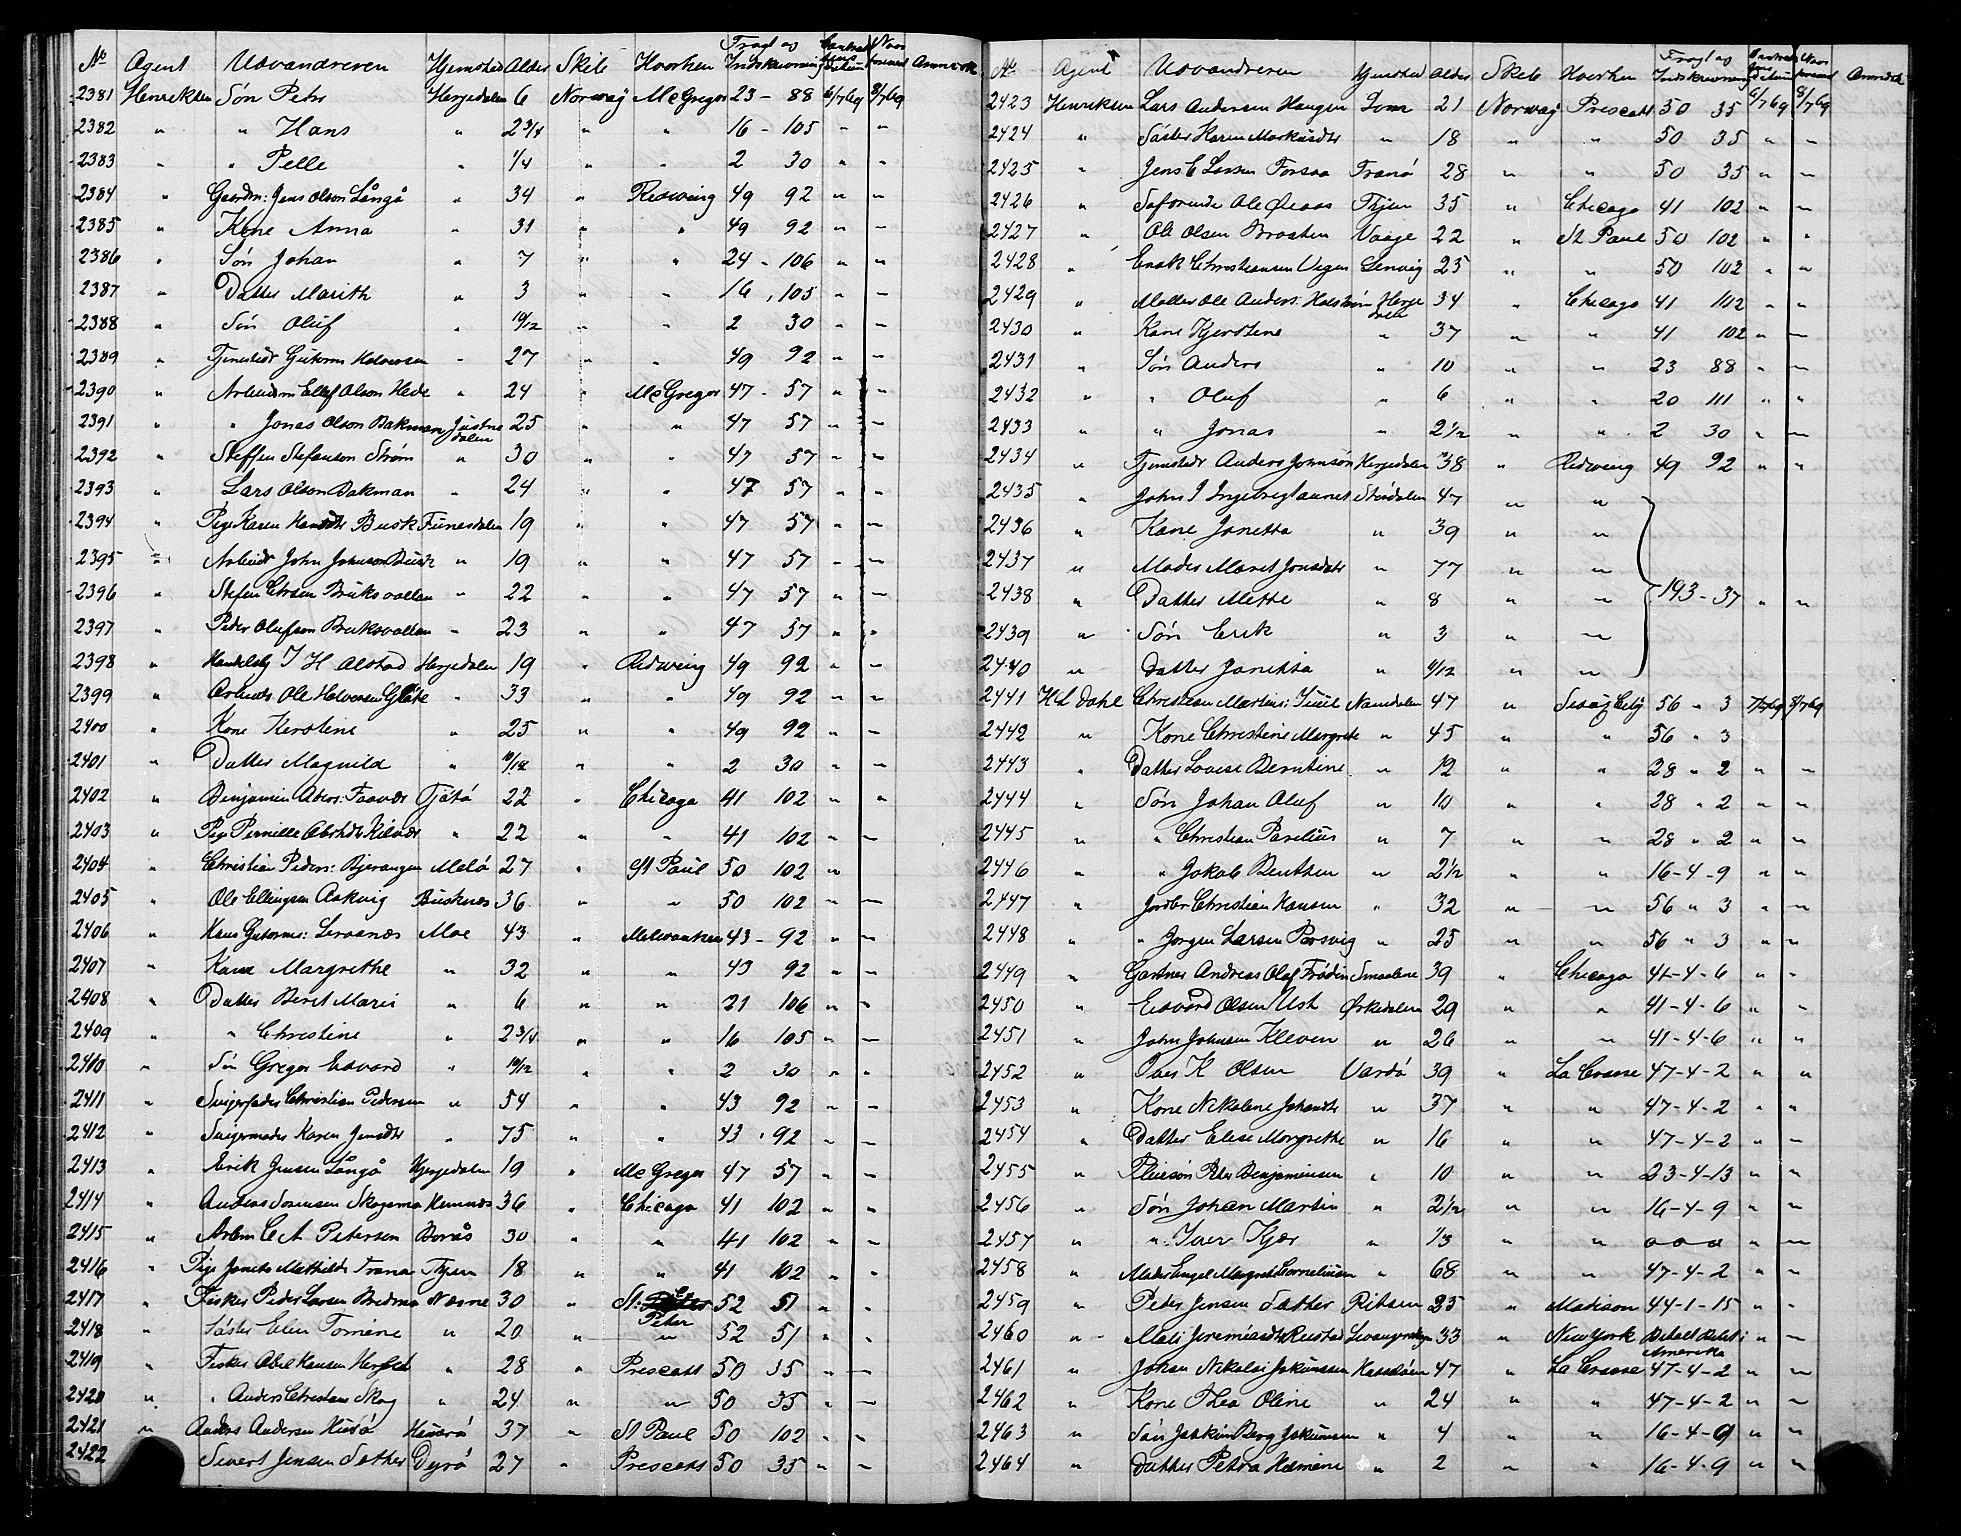 No Agent Udvandreren Hjemsted Alder Skib Hvorhen Fragt og Indskrivning Contractens Datum Naar fremmed Anmærk
2381 Henriksen Søn Peter Herjedalen 6 Norway McGregor 23 - 88 6/7 69 8/7 69
2382 " " Hans " 2 3/4 " " 16 - 105 " "
2383 " " Pelle " 1/4 " " 2 30 " "
2384 " Gaardm: Jens Olson Långå " 34 " Redwing 49 92 " "
2385 " Kone Anna " 31 " " 49 92 " "
2386 " Søn Johan " 7 " " 24 - 106 " "
2387 " Datter Marith " 3 " " 16 , 105 " "
2388 " Søn Oluf " 10/12 " " 2 30 " "
2389 " Tjenestedr Gutorm Halvorsen " 27 " " 49 92 " "
2390 " Arbeidsm Ellef Olson Hede " 24 " McGregor 47 - 57 " "
2391 " " Jonas Olson Bakman Justnedalen 25 " " 47 57 " "
2392 " Steffen Stefanson Strøm " 30 " " 47 57 " "
2393 " Lars Olson Bakman " 24 " " 47 57 " "
2394 " Pige Karen Hansdtr Busk Funesdalen 19 " " 47 57 " "
2395 " Arbeidr John Johnson Busk " 19 " " 47 57 " "
2396 " Stefen Ersen Bruksvollen " 22 " " 47 57 " "
2397 " Peder Olufson Bruksvollen " 23 " " 47 57 " "
2398 " Handelsbtj J H Alstad Herjedalen 19 " Redwing 49 92 " "
2399 " Arbeidr Ole Halvorsen Gløte " 33 " " 49 92 " "
2400 " Kone Kerstine " 25 " " 49 92 " "
2401 " Datter Magnild " 10/12 " " 2 30 " "
2402 " Benjamin Abers: Faavær Tjøtø 22 " Chicago 41 102 " "
2403 " Pige Pernille " 22 " " 41 102 " "
2404 " Christian Peders: Bjerangen Melø 27 " St Paul 50 102 "
2405 " Ole Ellingsen Aakvig Busknes 36 " " 50 102 " "
2406 " Hans Gutorms: Moe 43 " Milwaukee 43 - 92 " "
2407 " Kone Margrethe " 32 " " 43 92 " "
2408 " Datter Beret Marie " 6 " " 21 106 " "
2409 " " Christine " 2 3/4 " " 16 105 " "
2410 " Søn Gregor Edvard " 10/12 " " 2 30 " "
2411 " Svigerfader Christian Pedersen " 54 " " 43 92 " "
2412 " Svigermoder Karen Jensdtr " 75 " " 43 , 92 " "
2413 " Erik Jensen Långå Herjedalen 19 " McGregor 47 57 " "
2414 " Andreas Sørensen Skogsmo Hemnæs 36 " Chicago 41 102 " "
2415 " Arbm C A Petersen Borås 30 " " 41 102 " "
2416 " Pige Janette Mathilde Trana Thjem 18 " " 41 102 " "
2417 " Fisker Peder Larsen Bredmo Næsne 30 " St: Peter 52 51 " "
2418 " Søster Elen Tomine " 20 " " 52 51 " "
2419 " Fisker Abel Hansen " 28 " Prescott 50 35 " "
2420 " " Anders Christians Skog " 24 " " 50 35 " "
2421 " Anders Andersen 37 " St Paul 50 102 " "
2422 Sivert Jensen Sæther Dyrø 27 " Prescott 50 35 " "
No Agent Udvandreren Hjemsted Alder Skib Hvorhen Fragt og Indskrivning Contractens Datum Naar fremmed Anmærk
2423 Henriksen Lars Andersen Haugen Lom 21 Norway Prescott 50 35 6/7 69 8/7 69
2424 " Søster Karen Markusdtr " 18 " " 50 35 " "
2425 " Jens E Larsen Forsaa Tranø 28 " " 50 35 " "
2426 " Søfarende Ole Thjem 35 " Chicago 41 102 " "
2427 " Ole Olsen Brosten Vaage 22 " St Paul 50 102 " "
2428 " Enok Christiansen Vegen Lenvig 25 " " 50 102 " "
2429 " Møller Ole Anders: Holstrøm Herjedalen 34 " Chicago 41 102 " "
2430 " Kone Kjerstine " 37 " " 41 102 " "
2431 " Søn Anders " 10 " " 23 88 " "
2432 " " Oluf " 6 " " 20 111 " "
2433 " " Jonas " 2 1/2 " " 2 30 " "
2434 " Tjenestedr Anders Johnsøn Herjedalen 38 " Redwing 49 92 " "
2435 " John J Størdalen 47 " "
2436 " Kone Janetta " 39 " "
2437 " Moder Maret Jonsdatr " 77 " "
2438 " Datter Mette " 8 " " 193 - 37 " "
2439 " Søn Erik " 3 " "
2440 " Datter Janetta " 9/12 " "
2441 H L Dahl Christian Martins: Juul Namdalen 47 " City 56 " 3 7/7 69 8/7 69
2442 " Kone Christine Margrete " 45 " " 56 " 3
2443 " Datter Lovise Berntine " 12 " " 28 " 2 " "
2444 " Søn Johan Oluf " 10 " " 28 " 2 " "
2445 " " Christian Parelius " 7 " " 28 " 2 " "
2446 " " Jakob Benthen " 2 1/2 " " 16-4-9 " "
2447 " Jordbr Christian Hansen " 32 " " 56 " 3 " "
2448 " " Jørgen Larsen Porsvig " 25 " " 56 " 3 " "
2449 " Gartner Andreas Olaf Frødin Smaalene 39 " Chicago 41-4-6 " "
2450 " Edvard Olsen Ust Ørkedalen 29 " " 41-4-6 " "
2451 " John Johnsen Kleven " 26 " " 41-4-6 " "
2452 " Iver K Olsen Vardø 39 " La Crosse 47-4-2 " "
2453 " Kone Nikoline Johansdtr " 37 " " 47-4-2 " "
2454 " Datter Elise Margrethe " 16 " " 47-4-2 " "
2455 " Pleiesøn Peter Benjaminsen " 10 " " 23-4-13 " "
2456 " Søn Johan Martin " 2 1/2 " " 16-4-9 " "
2457 " " Iver Kjær " 1/3 " " o o o " "
2458 " Moder Engel Margret Corneliusen " 68 " " 47-4-2 " "
2459 " Peder Jensen Sæther Ribsen 25 " Madison 44-1-15 " "
2460 " Mali Jeremiasdtr Rustad Levanger 33 " New York Betalt Billet i Amerika " "
2461 " Johan Nikolai Jakobssen 47 " La Crosse 47-4-2 " "
2462 " Kone Thea Oline " 24 " " 47-4-2 " "
2463 " Søn Joakim Berg Jakobssen " 4 " " 16-4-9 " "
2464 " Datter Petra Hamine " 2 " " 16-4-9 " "